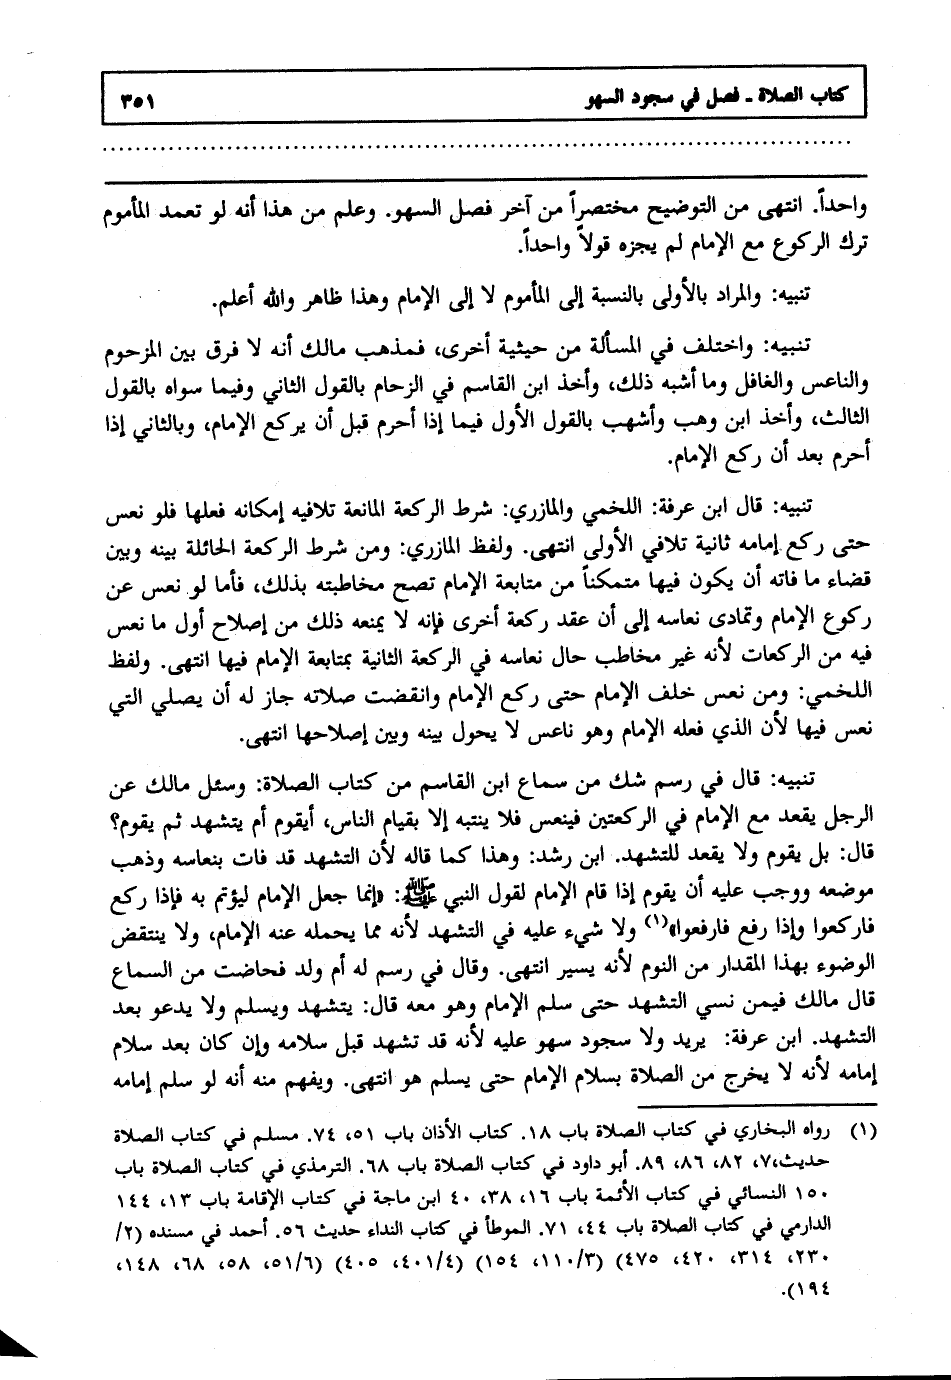 كتاب الصلاة ـ فصل في سجود السهو ٣٥١
واحداً. انتهى من التوضيح مختصراً من آخر فصل السهو. وعلم من هذا أنه لو تعمد المأموم
ترك الركوع مع الإمام لم يجزه قولاً واحداً.
تنبيه: والمراد بالأولى بالنسبة إلى المأموم لا إلى الإمام وهذا ظاهر والله أعلم.
تنبيه: واختلف في المسألة من حيثية أخرى، فمذهب مالك أنه لا فرق بين المزحوم
والناعس والغافل وما أشبه ذلك، وأخذ ابن القاسم في الزحام بالقول الثاني وفيما سواه بالقول
الثالث، وأخذ ابن وهب وأشهب بالقول الأول فيما إذا أحرم قبل أن يركع الإمام، وبالثاني إذا
أحرم بعد أن ركع الإمام.
تنبيه: قال ابن عرفة: اللخمي والمازري: شرط الركعة المانعة تلافيه إمكانه فعلها فلو نعس
حتى ركع إمامه ثانية تلافي الأولى انتهى. ولفظ المازري: ومن شرط الركعة الحائلة بينه وبين
قضاء ما فاته أن يكون فيها متمكناً من متابعة الإمام تصح مخاطبته بذلك، فأما لو نعس عن
ركوع الإمام وتمادى نعاسه إلى أن عقد ركعة أخرى فإنه لا يمنعه ذلك من إصلاح أول ما نعس
فيه من الركعات لأنه غير مخاطب حال نعاسه في الركعة الثانية بمتابعة الإمام فيها انتهى. ولفظ
اللخمي: ومن نعس خلف الإمام حتى ركع الإمام وانقضت صلاته جاز له أن يصلي التي
نعس فيها لأن الذي فعله الإمام وهو ناعس لا يحول بينه وبين إصلاحها انتهى.
تنبيه: قال في رسم شك من سماع ابن القاسم من كتاب الصلاة: وسئل مالك عن
الرجل يقعد مع الإمام في الركعتين فينعس فلا ينتبه إلا بقيام الناس، أيقوم أم يتشهد ثم يقوم؟
قال: بل يقوم ولا يقعد للتشهد. ابن رشد: وهذا كما قاله لأن التشهد قد فات بنعاسه وذهب
موضعه ووجب عليه أن يقوم إذا قام الإمام لقول النبي ﷺ: «إنما جعل الإمام ليؤتم به فإذا ركع
فاركعوا وإذا رفع فارفعوا»(١) ولا شيء عليه في التشهد لأنه مما يحمله عنه الإمام، ولا ينتقض
الوضوء بهذا المقدار من النوم لأنه يسير انتهى. وقال في رسم له أم ولد فحاضت من السماع
قال مالك فيمن نسي التشهد حتى سلم الإمام وهو معه قال: يتشهد ويسلم ولا يدعو بعد
التشهد. ابن عرفة: يريد ولا سجود سهو عليه لأنه قد تشهد قبل سلامه وإن كان بعد سلام
إمامه لأنه لا يخرج من الصلاة بسلام الإمام حتى يسلم هو انتهى. ويفهم منه أنه لو سلم إمامه
(١) رواه البخاري في كتاب الصلاة باب ١٨. كتاب الأذان باب ٥١، ٧٤. مسلم في كتاب الصلاة
حديث،٧، ٨٢، ٨٦، ٨٩. أبو داود في كتاب الصلاة باب ٦٨. الترمذي في كتاب الصلاة باب
١٥٠ النسائي في كتاب الأئمة باب ١٦، ٣٨، ٤٠ ابن ماجة في كتاب الإقامة باب ١٣، ١٤٤
الدارمي في كتاب الصلاة باب ٤٤، ٧١. الموطأ في كتاب النداء حديث ٥٦. أحمد في مسنده (٢/
٢٣٠، ٣١٤، ٤٢٠، ٤٧٥) (٣/١١٠، ١٥٤) (٤/٤٠١، ٤٠٥) (٦/٥١، ٥٨، ٦٨، ١٤٨،
١٩٤).